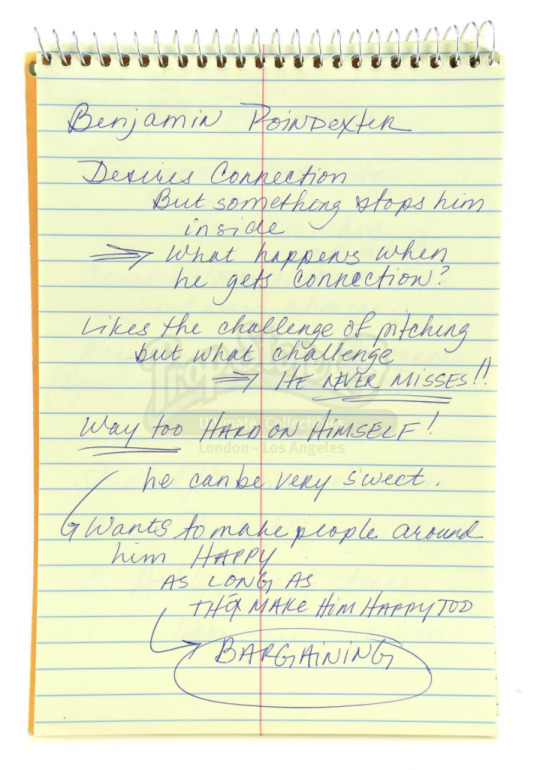 Benjamin Poindexter
Desires Connection
But something stops him
inside
⇒ What happens when
he gets connection?
Likes the challenge of pitching
but what challenge
⇒ HE NEVER MISSES!!
Way too HARD ON HIMSELF!
London - Los Angeles
he can be very sweet.
Wants to make people around
him HAPPY
AS LONG AS
THEY MAKE HIM HAPPY TOO
BARGAINING